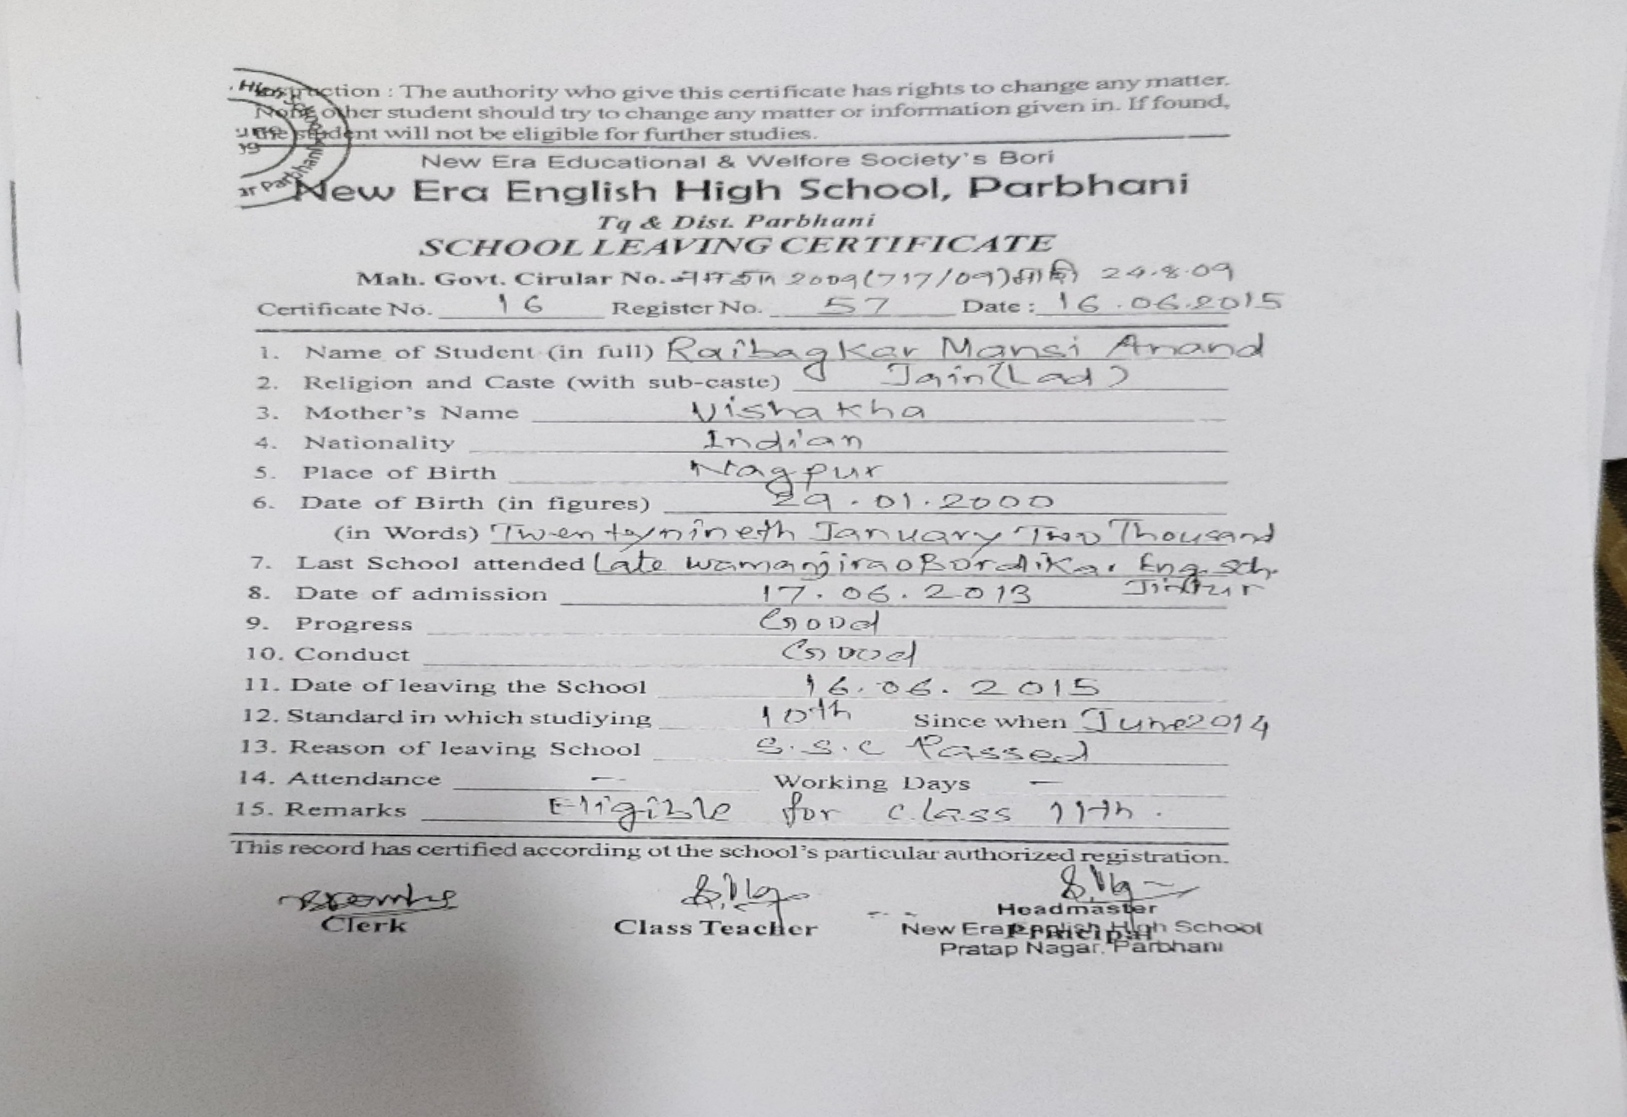 Instruction : The authority who give this certificate has rights to change any matter.
None other student should try to change any matter or information given in. If found,
the student will not be eligible for further studies.
New Era Educational & Welfore Society's Bori
New Era English High School, Parbhani
Tq & Dist. Parbhani
SCHOOL LEAVING CERTIFICATE
Mah. Govt. Cirular No. 2009(717/09) 24.8.09
Certificate No. 16 Register No. 57 Date : 16.06.2015
1. Name of Student (in full) Raibagkar Mansi Anand
2. Religion and Caste (with sub-caste) Jain(Lad)
3. Mother's Name Vishakha
4. Nationality Indian
5. Place of Birth Nagpur
6. Date of Birth (in figures) 29.01.2000
(in Words) Twentynineth January Two Thousand
7. Last School attended Late Wamanjirao Bordikar Eng. Sch.
Jintur
8. Date of admission 17.06.2013
9. Progress Good
10. Conduct Good
11. Date of leaving the School 16.06.2015
12. Standard in which studiying 10th Since when June2014
13. Reason of leaving School S.S.C Passed
14. Attendance - Working Days -
15. Remarks Eligible for class 11th.
This record has certified according ot the school's particular authorized registration.
Clerk
Class Teacher
Principal
Headmaster
New Era English High School
Pratap Nagar, Parbhani